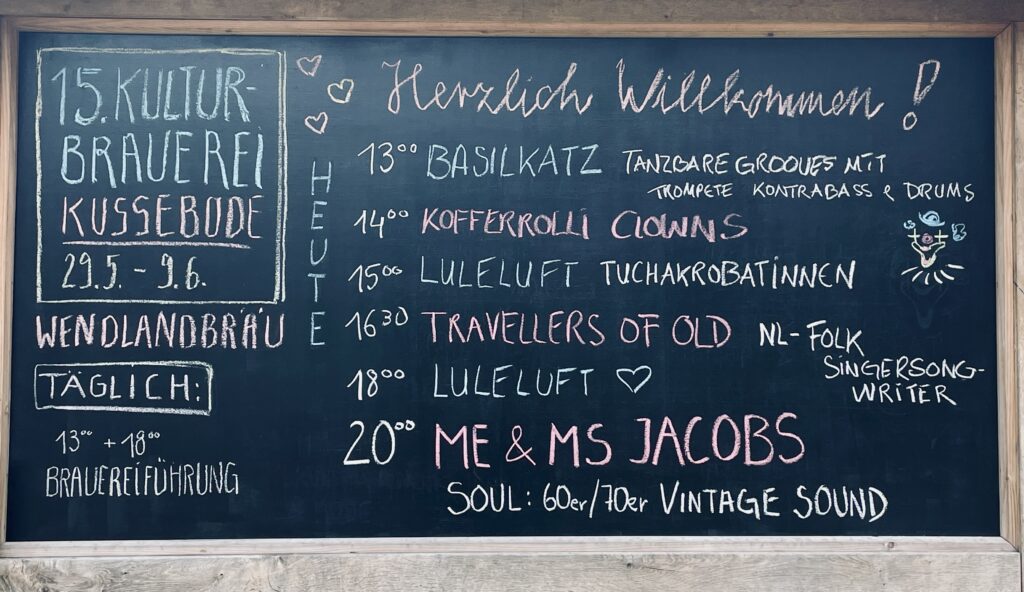 15. KULTUR-
BRAUEREI
KUSSEBODE
29.5. - 9.6.
WENDLANDBRÄU
TÄGLICH:
13⁰⁰ + 18⁰⁰
BRAUEREIFÜHRUNG
HEUTE
Herzlich Willkommen!
13⁰⁰ BASILKATZ TANZBARE GROOVES MIT
TROMPETE KONTRABASS & DRUMS
14⁰⁰ KOFFERROLLI CLOWNS
15⁰⁰ LULELUFT TUCHAKROBATiNNEN
16³⁰ TRAVELLERS OF OLD NL-FOLK
SiNGERSONG-
WRITER
18⁰⁰ LULELUFT ♡
20⁰⁰ ME & MS JACOBS
SOUL: 60er/70er VINTAGE SOUND